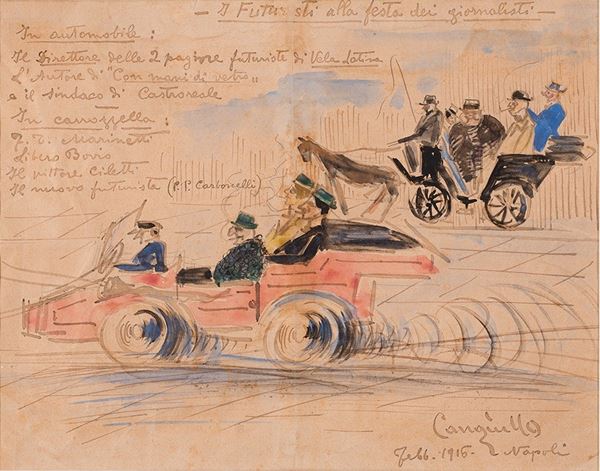 — I Futuristi alla festa dei giornalisti —
In automobile :
Il Direttore delle 2 pagine futuriste di Vela Latina
L'Autore di "Con mani di vetro„
e il sindaco di Castroreale
—
In carrozzella :
F. T. Marinetti
Libero Bovio
Il pittore
Il nuovo futurista (P. P. Carbonelli)
Cangiullo
Febb. 1916 - Napoli